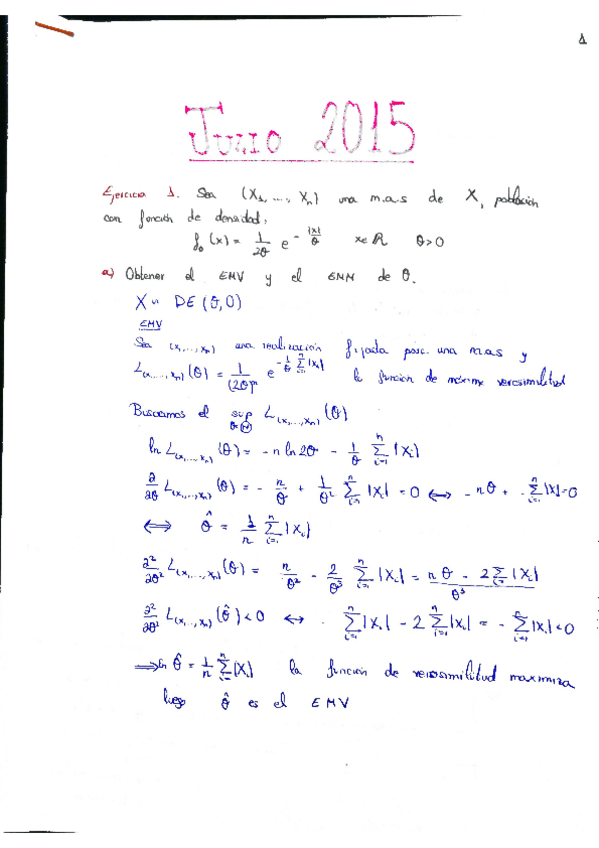 1
Junio 2015
Ejercicio 1. Sea (X₁, ..., Xₙ) una m.a.s de X, población
con función de densidad,
f_θ(x) = 1/(2θ) e^(-|x|/θ) x∈ℝ θ>0
a) Obtener el EMV y el EMM de θ.
X ~ DE(θ,0)
EMV
Sea (x₁,...,xₙ) una realización fijada para una m.a.s y
L_(x₁,...,xₙ)(θ) = 1/(2θ)ⁿ e^(-1/θ Σᵢ₌₁ⁿ |xᵢ|) la función de máxima verosimilitud
Buscamos el sup_(θ∈Θ) L_(x₁,...,xₙ)(θ)
ln L_(x₁,...,xₙ)(θ) = -n ln 2θ - 1/θ Σᵢ₌₁ⁿ |xᵢ|
∂/∂θ L_(x₁,...,xₙ)(θ) = - n/θ + 1/θ² Σᵢ₌₁ⁿ |xᵢ| = 0 ⟷ -nθ + Σᵢ₌₁ⁿ |xᵢ| = 0
⟺ θ̂ = 1/n Σᵢ₌₁ⁿ |xᵢ|
∂²/∂θ² L_(x₁,...,xₙ)(θ) = n/θ² - 2/θ³ Σᵢ₌₁ⁿ |xᵢ| = (nθ - 2Σᵢ₌₁ⁿ |xᵢ|)/θ³
∂²/∂θ² L_(x₁,...,xₙ)(θ̂) < 0 ⟷ Σᵢ₌₁ⁿ |xᵢ| - 2 Σᵢ₌₁ⁿ |xᵢ| = - Σᵢ₌₁ⁿ |xᵢ| < 0
⟹ En θ̂ = 1/n Σᵢ₌₁ⁿ |xᵢ| la función de verosimilitud maximiza
luego θ̂ es el EMV